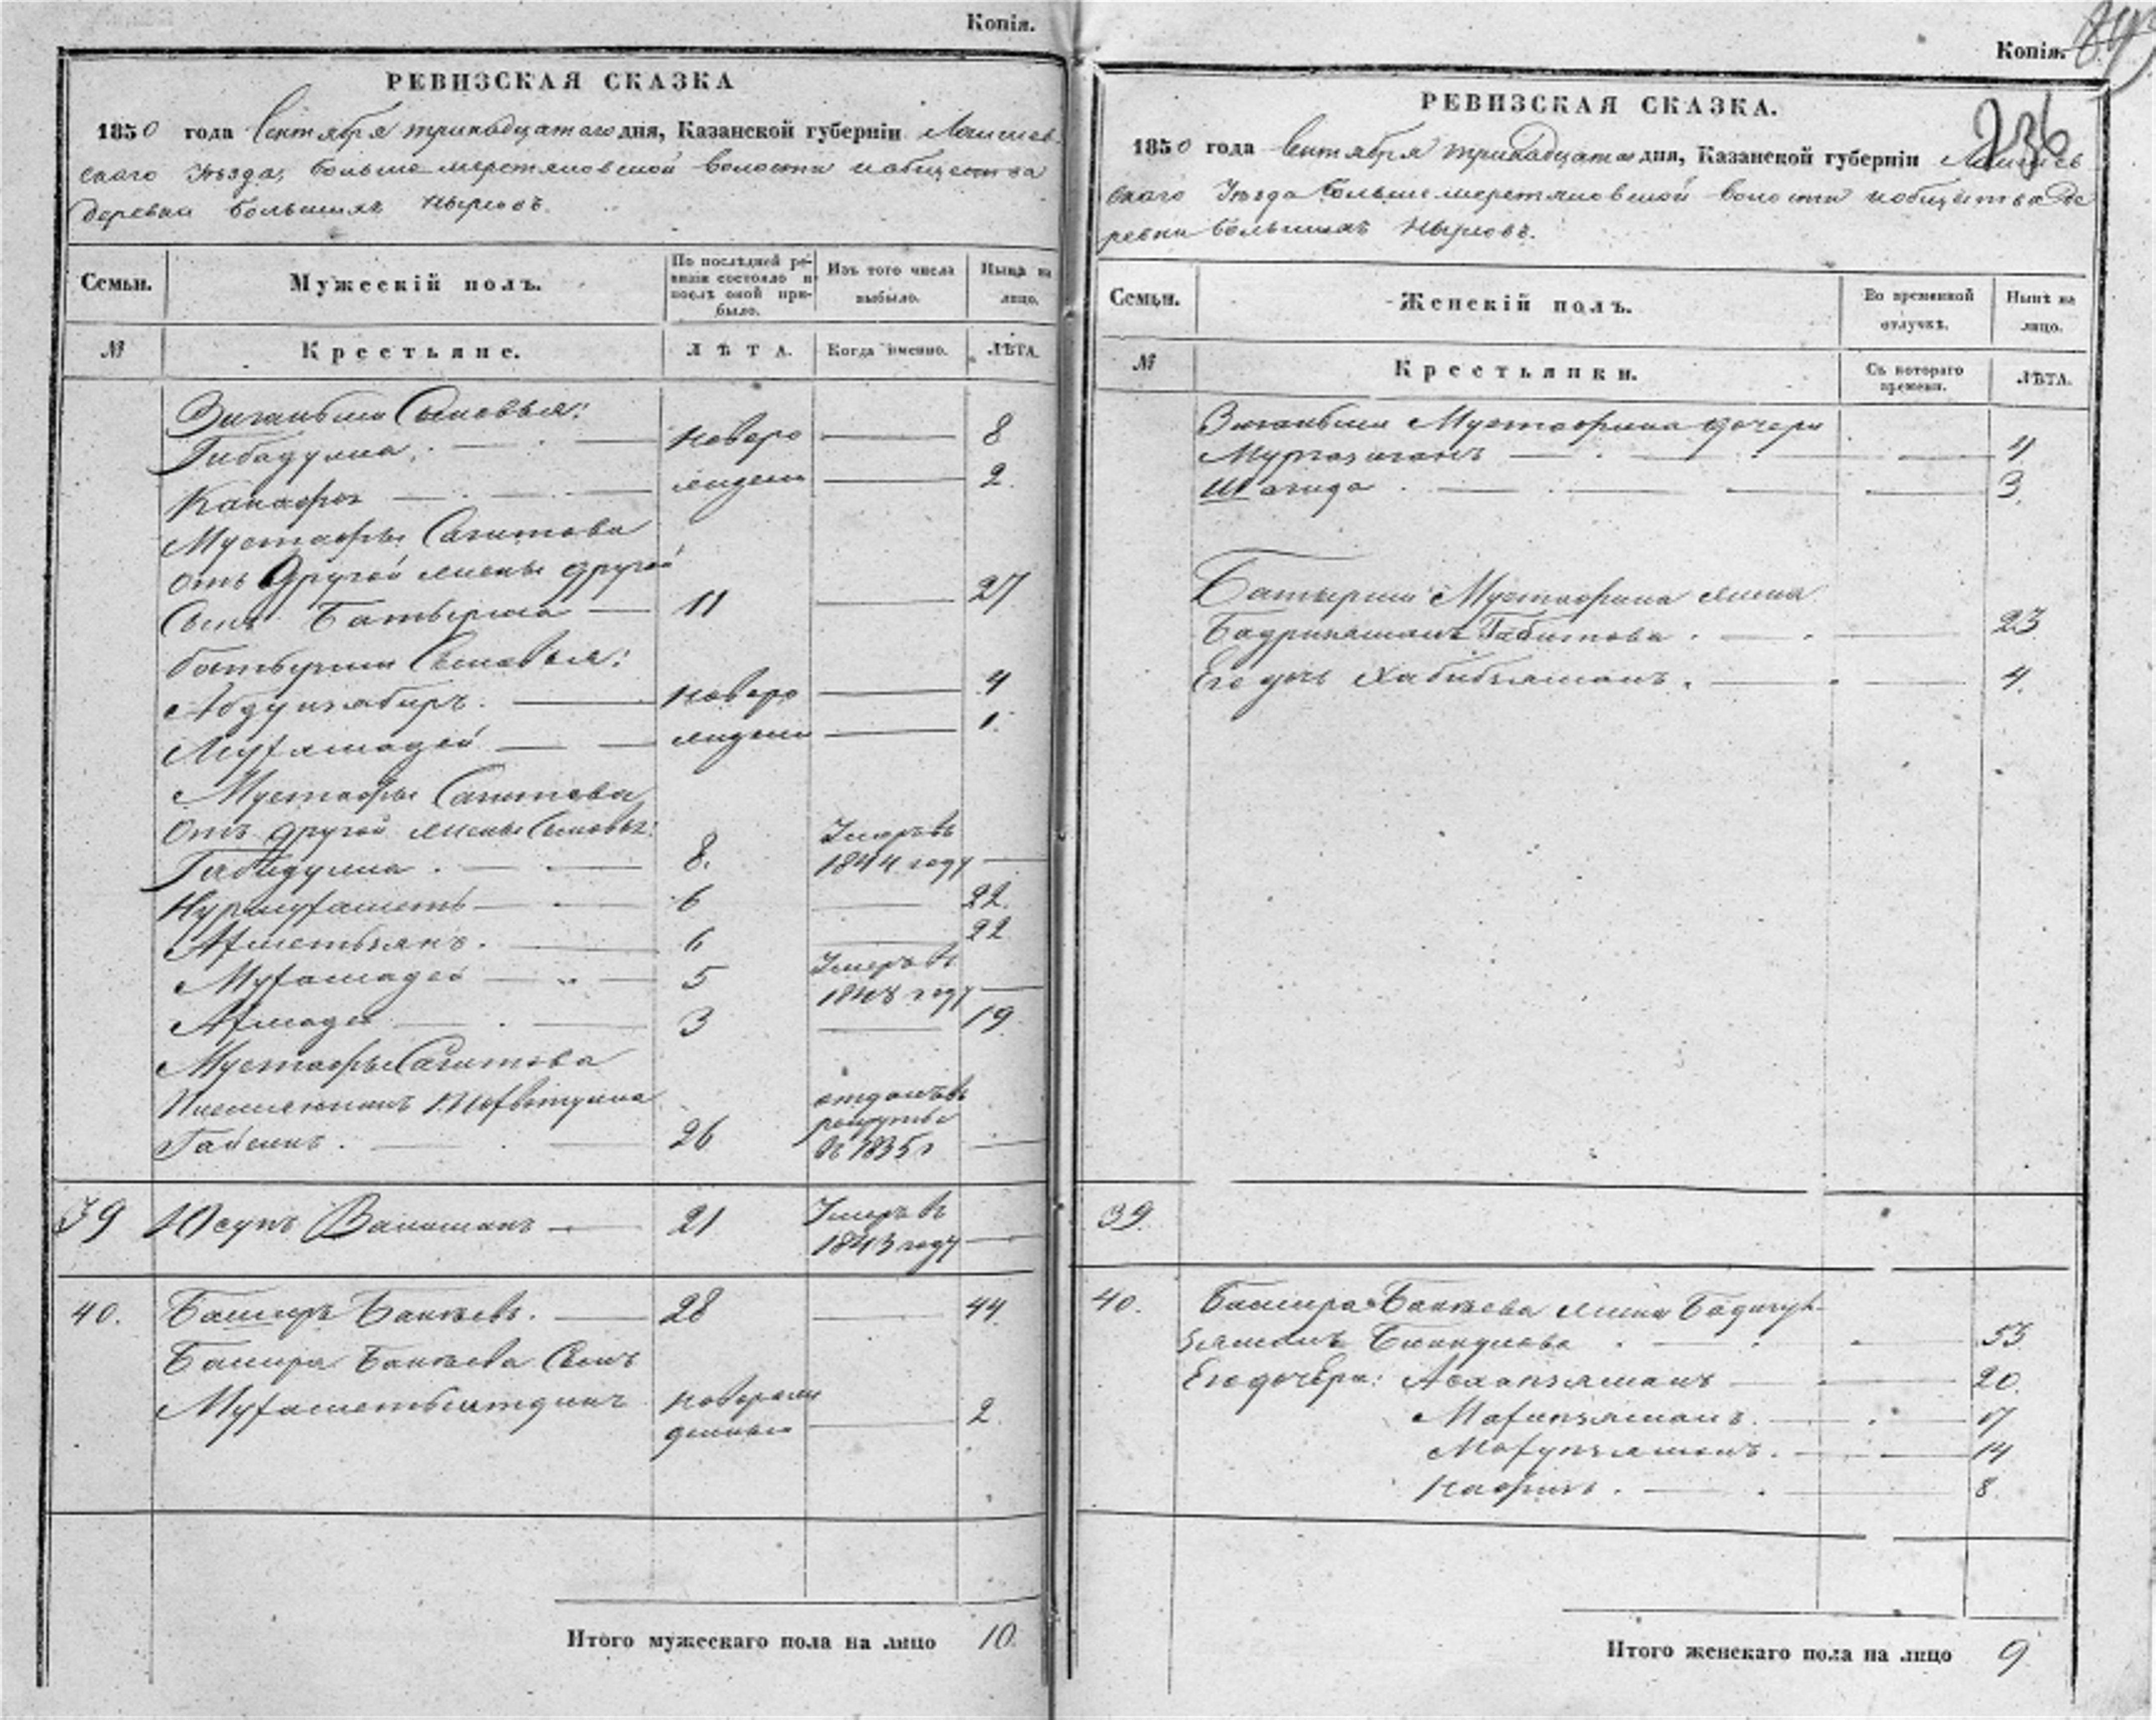 Копія.
РЕВИЗСКАЯ СКАЗКА
1850 года Сентября тринадцатаго дня, Казанской губерніи Лаишев-
скаго Уѣзда, больше меретяковской волости и общества
деревни большихъ Нырсовъ.
Семьи.
Мужескій полъ.
По послѣдней ре-
визіи состояло и
послѣ оной при-
было.
Изъ того числа
выбыло.
Нынѣ на
лицо.
№
Крестьяне.
ЛѢТА.
Когда именно.
ЛѢТА.
Зиганьши Сыновья:
Гибадулла новоро 8
Канафья жидени 2.
Мустафы Сагитова
отъ другой жены другой
Сынъ Батырша 11 27
батырши Сыновья:
Абдулзябиръ. новоро 4
Мухамадей жидени 1.
Мустафы Сагитова
Отъ другой жены Сыновья:
Габидулла 8. Умеръ въ
1844 году
Нурмухаметъ 6 22.
Ахметьзянъ. 6 22
Мухамадей 5 Умеръ въ
1848 году
Ахмадей 3 19
Мустафы Сагитова
Племянникъ
Гайсинъ. 26 отданъ въ
рекруты
въ 1835 г
39 Юсупъ 21 Умеръ въ
1843 году
40. Баширъ Бакѣевъ. 28 44
Башира Бакѣева Сынъ
Мухаметьбитдинъ новорож
денный 2.
Итого мужескаго пола на лицо 10.
Копія.
236
РЕВИЗСКАЯ СКАЗКА.
1850 года Сентября тринадцатаго дня, Казанской губерніи Лаишев
скаго Уѣзда больше меретяковской волости и общества де
ревни большихъ Нырсовъ.
Семьи.
Женскій полъ.
Во временной
отлучкѣ.
Нынѣ на
лицо.
№
Крестьянки.
Съ котораго
времени.
ЛѢТА.
Зиганьши Мустафина дочери
4
Шагида 3.
Батырши Мустафина жена
Бадриямалъ Габитова 23
Его дочь Хабибзямалъ. 4.
39.
40. Башира Бакѣева жена Бадигул-
зямалъ 53
Его дочери: 20.
Махипзямалъ. 17
14
Нафиса. 8.
Итого женскаго пола на лицо 9